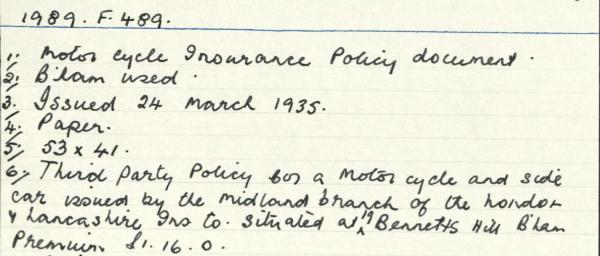 1989. F. 489.
1. Motor cycle Insurance Policy document.
2. B'ham used.
3. Issued 24 March 1935.
4. Paper.
5. 53 x 41.
6. Third Party Policy for a Motor cycle and side
car issued by the Midland branch of the London
& Lancashire Ins Co. Situated at 19 Bennetts Hill B'ham
Premium £1. 16. 0.